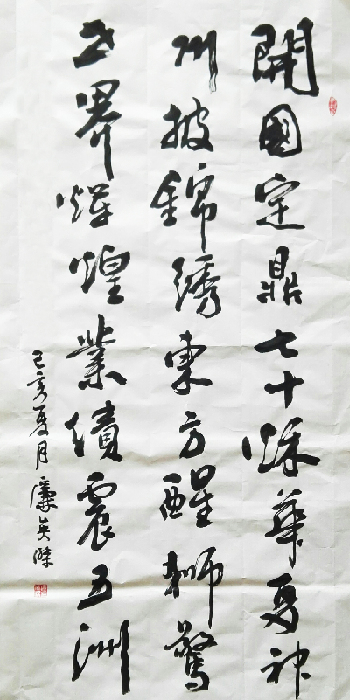 開國定鼎七十秋華夏神
州披錦綉東方醒獅驚
世界輝煌業績震五洲
己亥夏月廉英傑